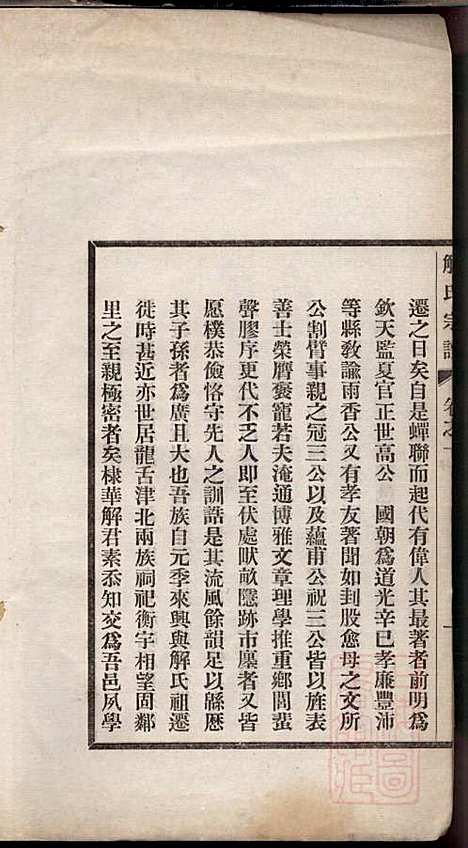 解氏宗譜
卷之一
遷之日矣自是蟬聯而起代有偉人其最著者前明爲
欽天監夏官正世高公 國朝爲道光辛巳孝廉豐沛
等縣敎諭雨香公又有孝友著聞如刲股愈母之文所
公割臂事親之冠三公以及蘊甫公祝三公皆以旌表
善士榮膺褒寵若夫淹通博雅文章理學推重鄕閭蜚
聲膠序更代不乏人即至伏處畎畝隱跡市廛者又皆
愿樸恭儉恪守先人之訓誥是其流風餘韻足以緜歷
其子孫者爲廣且大也吾族自元季來興與解氏祖遷
徙時甚近亦世居龍舌津北兩族祠祀衡宇相望固鄰
里之至親極密者矣棣華解君素忝知交爲吾邑夙學